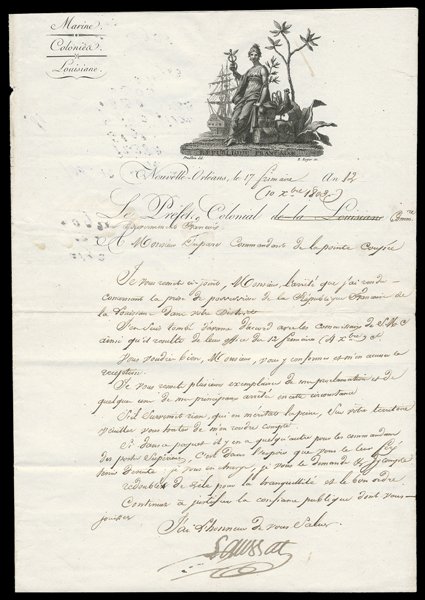 Marine.
Colonies.
Louisiane.
RÉPUBLIQUE FRANÇAISE
Nouvelle-Orléans, le 17 frimaire An 12
(10 Xbre 1803.)
Le Préfet Colonial de la Louisiane Comm.re
du gouvernement français
A Monsieur Duparc Commandant de la pointe Coupée
Je vous remets ci-joint, Monsieur, l'arrêté que j'ai rendu
concernant la prise de possession de la République française de
la Louisiane dans votre District.
J'en suis tombé d'avance d'accord avec les commissaires de S. M. C.
ainsi qu'il résulte de leur office du 12 frimaire (4 Xbre)
Vous voudrez bien, Monsieur, vous y conformer et m'en accuser la
réception.
Je vous remets plusieurs exemplaires de ma proclamation et de
quelques uns de mes principaux arrêtés en cette circonstance
S'il survenait rien, qui en méritât la peine, sur votre territoire
veuillez vous hâter de m'en rendre compte.
Si dans ce paquet il y en a quelqu'autre pour les commandans
des postes Supérieurs, c'est dans l'espoir que vous le leur
ferez
je vous en charge, je vous le demande et je compte
redoublez de zèle pour la tranquillité et le bon ordre.
Continuez à justifier la confiance publique dont vous
jouissez
J'ai l'honneur de vous saluer.
Laussat